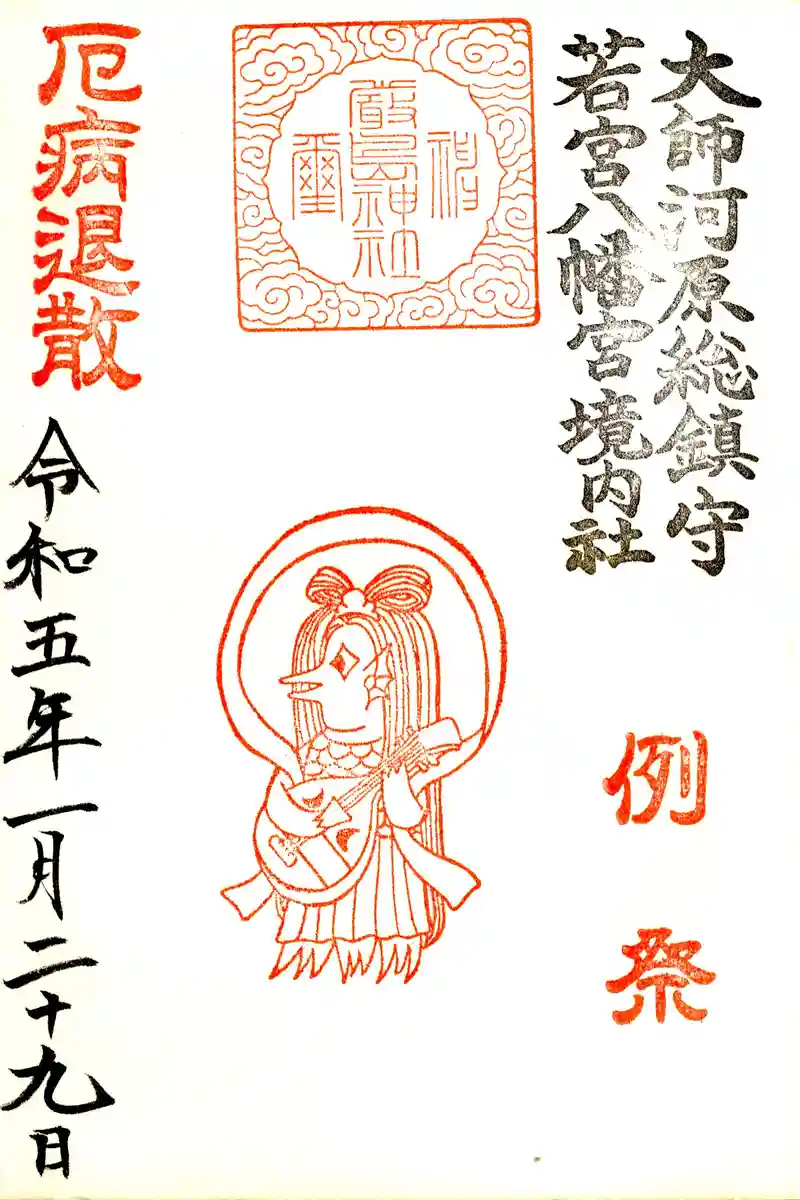 大師河原総鎮守
若宮八幡宮境内社
例祭
嚴島神社
厄病退散
令和五年一月二十九日